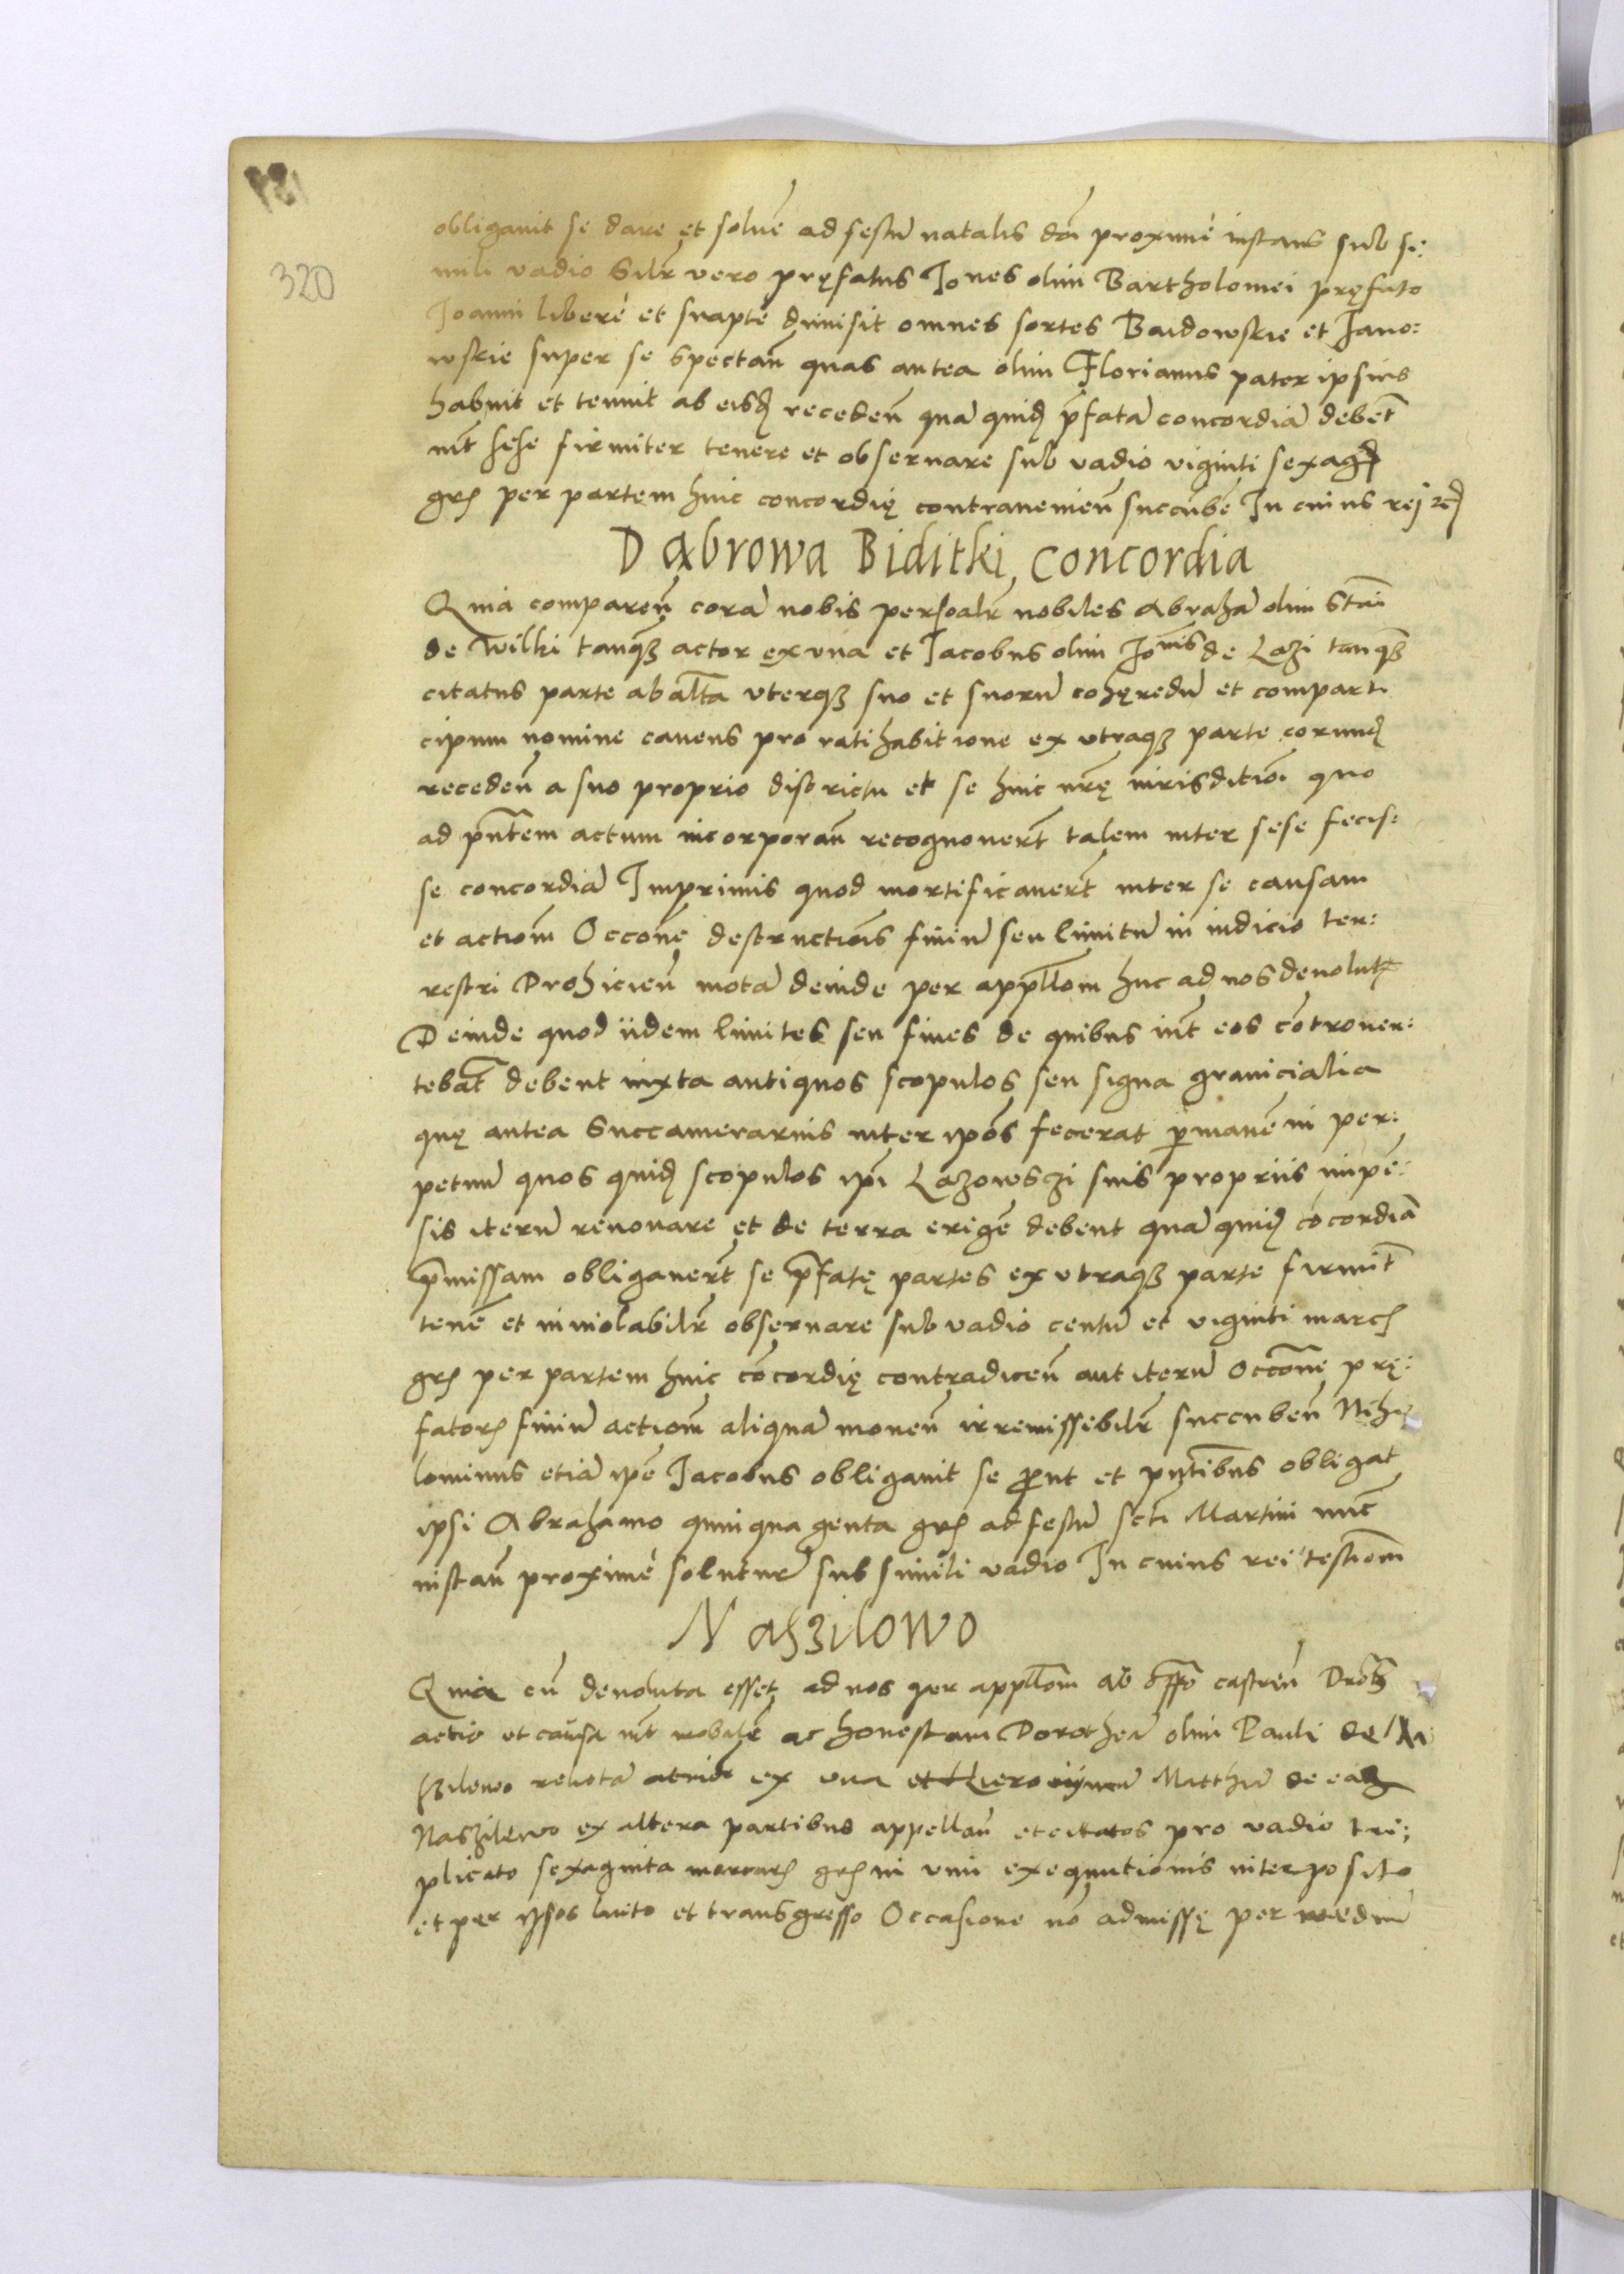 320
obligauit se dare et soluē ad festū natalis dn̄i proximè instans sub si:
mili vadio Silr̄ vero pręfatus Jones olim Bartholomei pręfato
Joanni liberè et suaptè dimisit omnes sortes Baidowskie et Jano:
wskie super se spectan̄ quas antea olim Florianus pater ipsius
habuit et tenuit ab eisd receden̄ quā quid p̄fatā concordiā debēt
int̄ sese firmiter tenere et obseruare sub vadio viginti sexag
gr̄ per partem huic concordię contrauenien̄ succūbē In cuius rej
Dąbrowa Biditki Concordia
Quia comparen̄ corā nobis personalr̄ nobiles Abrahā olim Stāi
de Wilki tanqȝ actor ex vna et Jacobus olim Jonis de Lazi tanqȝ
citatus parte ab altā vterqȝ suo et suorū cohęredū et comparti
cipum nomine cauens pro ratihabitione ex vtraqȝ parte eorund
receden̄ a suo proprio districtu et se huic nr̄ę iurisditiōi quo
ad pn̄tem actum incorporan̄ recognouerūt talem inter sese fecis:
se concordiā Imprimis quod mortificauerūt inter se causam
et actiōm Occōne destructiōis finiū seu limitū in iudicio ter:
restri Drohicien̄ motā deinde per appllōm huc ad nos deuolut
Deinde quod iidem limites seu fines de quibus int̄ eos cōtrouer:
tebāt debent iuxta antiquos scopulos seu signa granicialia
quę antea Succamerarius inter ipōs fecerat p̄manē in per:
petuū quos quid scopulos ipi Lazowszi suis propriis impē:
sis iterū renouare et de terra erigē debent quā quid cōcordiā
p̄missam obligauerūt se p̄fatę partes ex vtraqȝ parte firmit̄
tenē et inuiolabilr̄ obseruare sub vadio centū et viginti marc
gr̄ per partem huic cōcordię contradicen̄ aut iterū occōne prę:
fator finiū actiōm aliquā mouen̄ irremissebilr̄ succuben̄ Nihi
lominus etiā ipē Jacobus obligauit se p̄ut et pn̄tibus obligat
ipsi Abrahamo quinquagenta gr̄ ad festū scti Martini nūc
instan̄ proximè soluturū sub simili vadio In cuius rei testiōm
Naszilowo
Quia cū deuoluta esset ad nos per appllōm ab offō castren̄ Droh
actio et causa int̄ nobilē ac honestam Dorotheā olim Pauli de Na
szilowo relictā ex vna et Hieronymū Matthiā de ead
Naszilewo ex altera partibus appellan̄ et citatos pro vadio tri:
plicato sexaginta marcar gr̄ in vim exequutionis interposito
et per ipsos luito et transgresso Occasione nō admissę per mediū